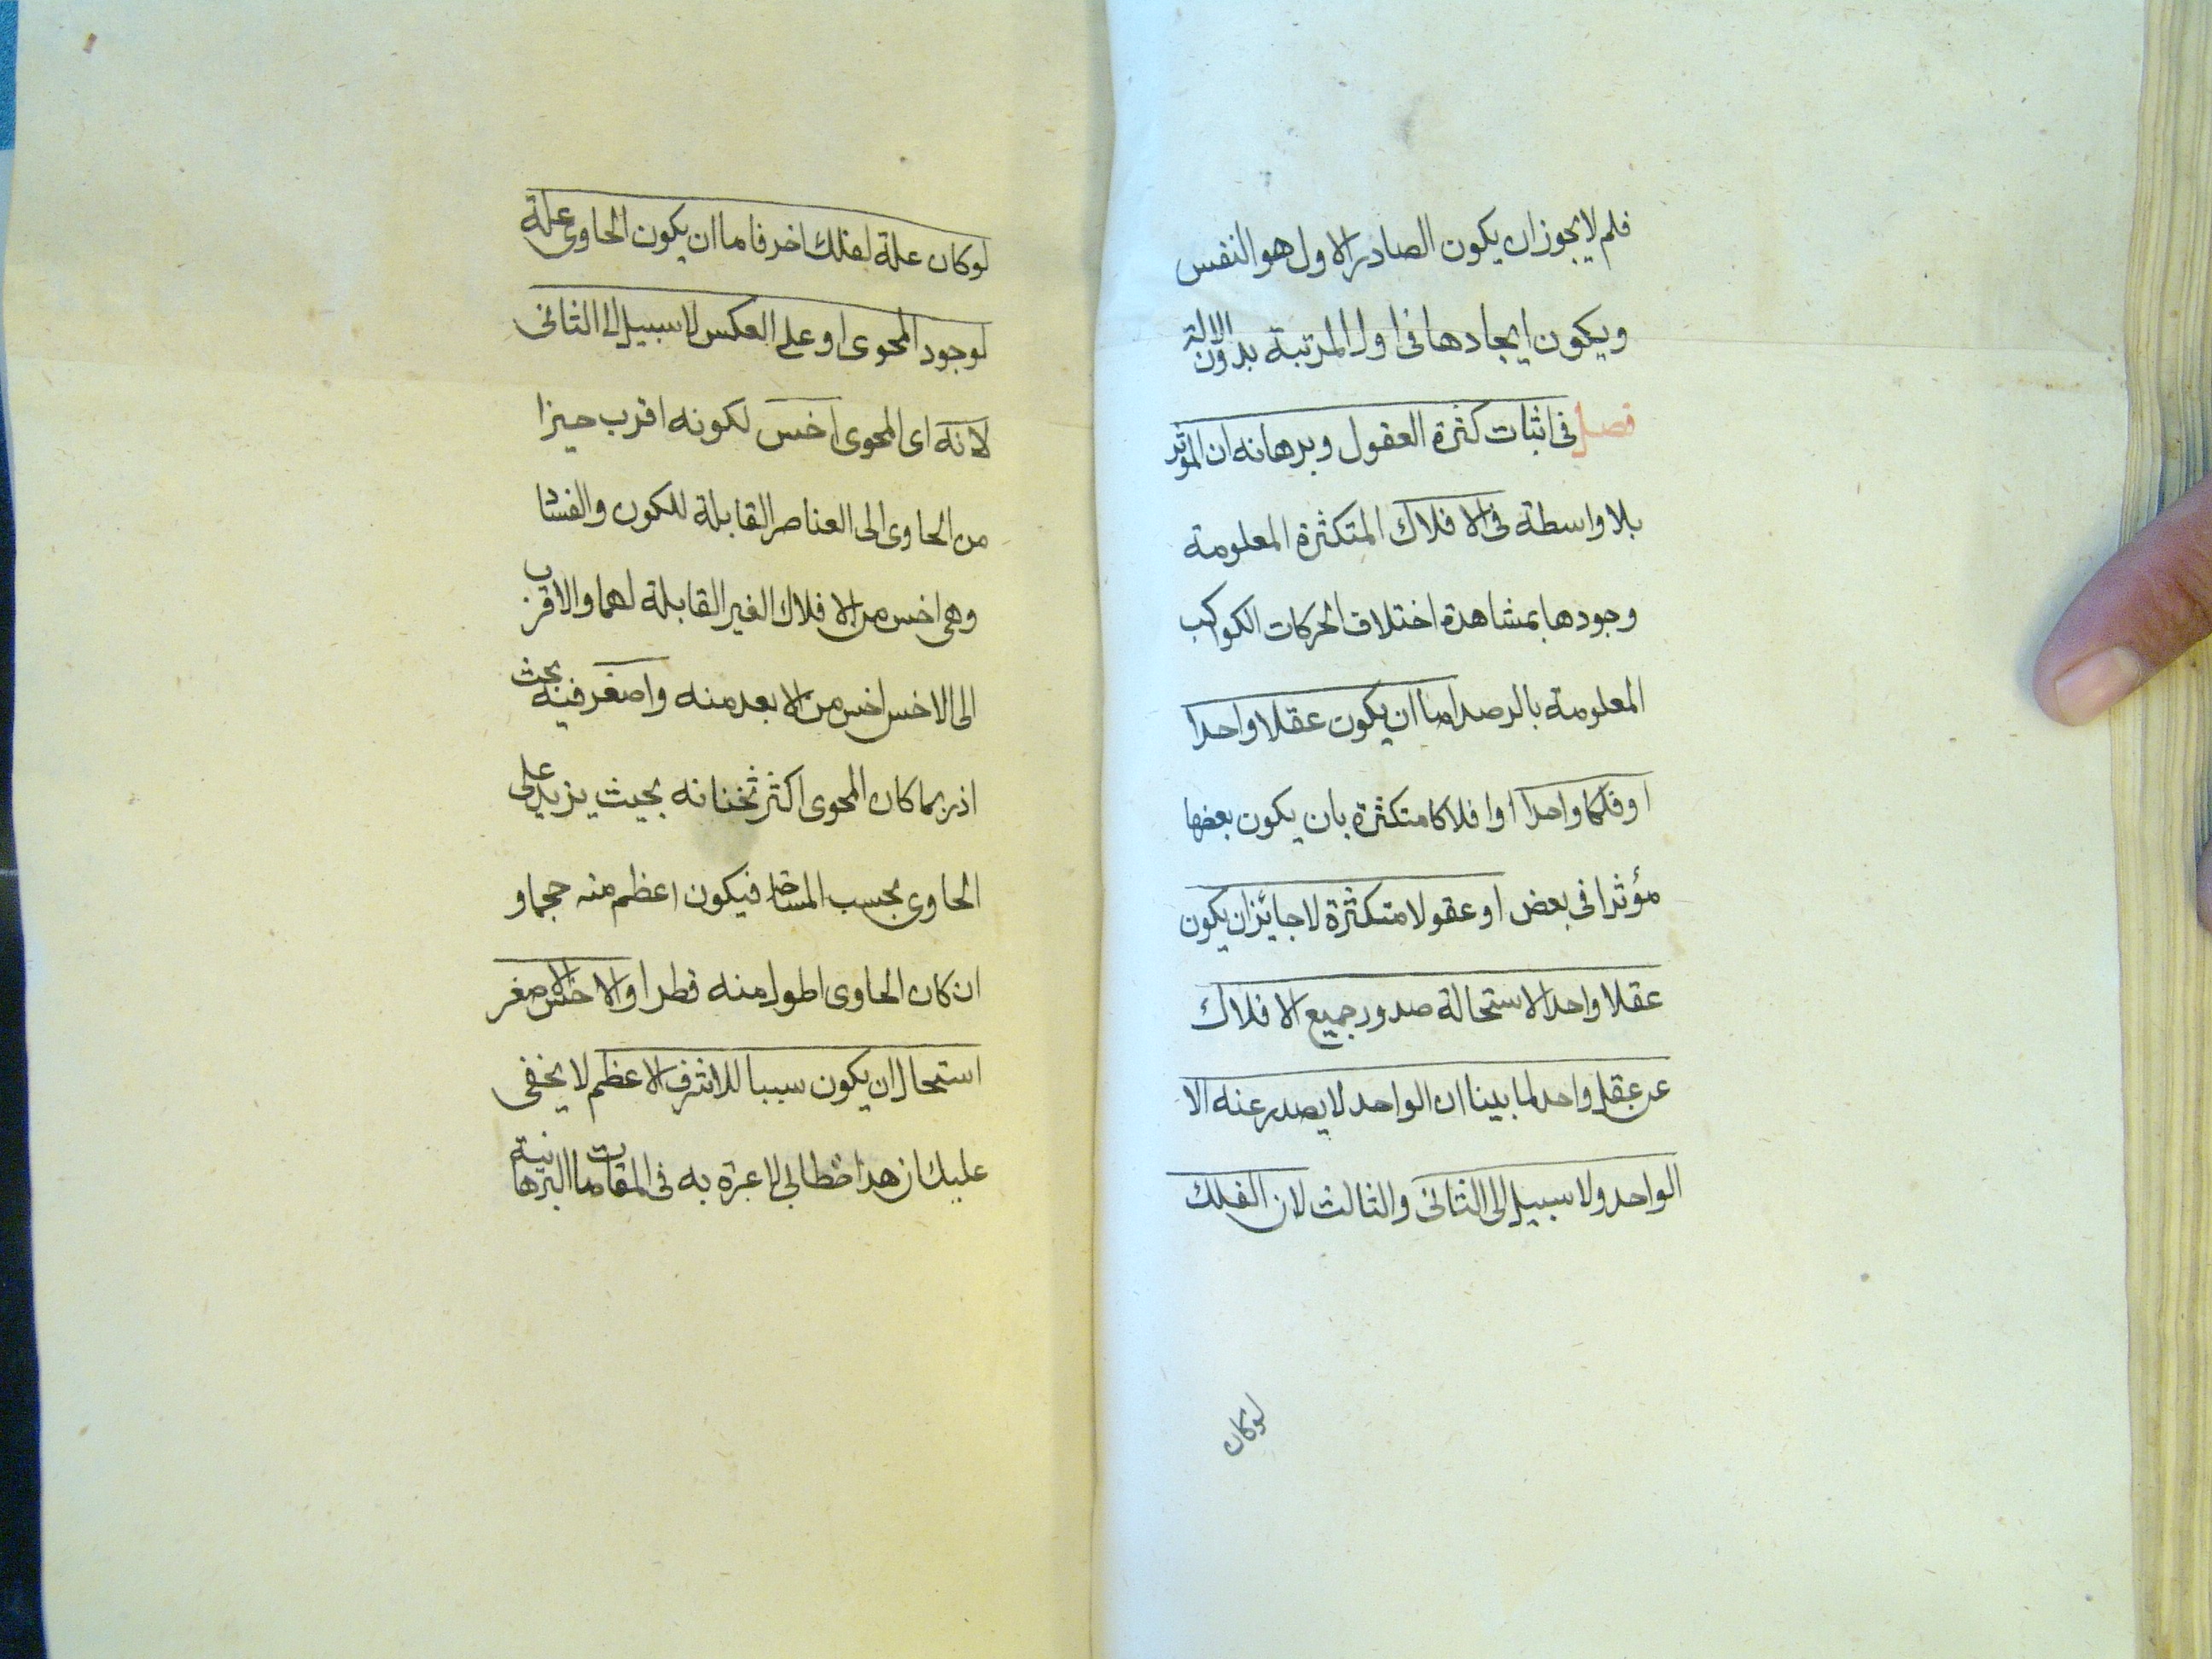 فلم لا يجوز ان يكون الصادر الاول هو النفس
ويكون ايجادها فى اول المرتبة بدون الالة
فصل فى اثبات كثرة العقول وبرهانه ان المؤثر
بلا واسطة فى الافلاك المتكثرة المعلومة
وجودها بمشاهدة اختلاف الحركات الكواكب
المعلومة بالرصد اما ان يكون عقلا واحدا
او فلكا واحدا او افلاكا متكثرة بان يكون بعضها
مؤثرا فى بعض او عقولا متكثرة لا جايئز ان يكون
عقلا واحدا لاستحالة صدور جميع الافلاك
عن عقل واحد لما بينا ان الواحد لا يصدر عنه الا
الواحد ولا سبيل الى الثانى والثالث لان الفلك
لوكان
لوكان علة لفلك اخر فاما ان يكون الحاوى علة
لوجود المحوى او على العكس لا سبيل الى الثانى
لانه اى المحوى اخس لكونه اقرب حيزا
من الحاوى الى العناصر القابلة للكون والفساد
وهى اخس من الافلاك الغير القابلة لهما والاقرب
الى الاخس اخس من الابعد منه واصغر فيه بحث
اذ ربما كان المحوى اكثر ثخنا نه بحيث يزيد على
الحاوى بحسب المساحة فيكون اعظم منه حجما و
ان كان الحاوى اطول منه قطرا والاخس الاصغر
استحال ان يكون سببا للاشرف الاعظم لا يخفى
عليك ان هذا خطابى لا عبرة به فى المقامات البرهانية